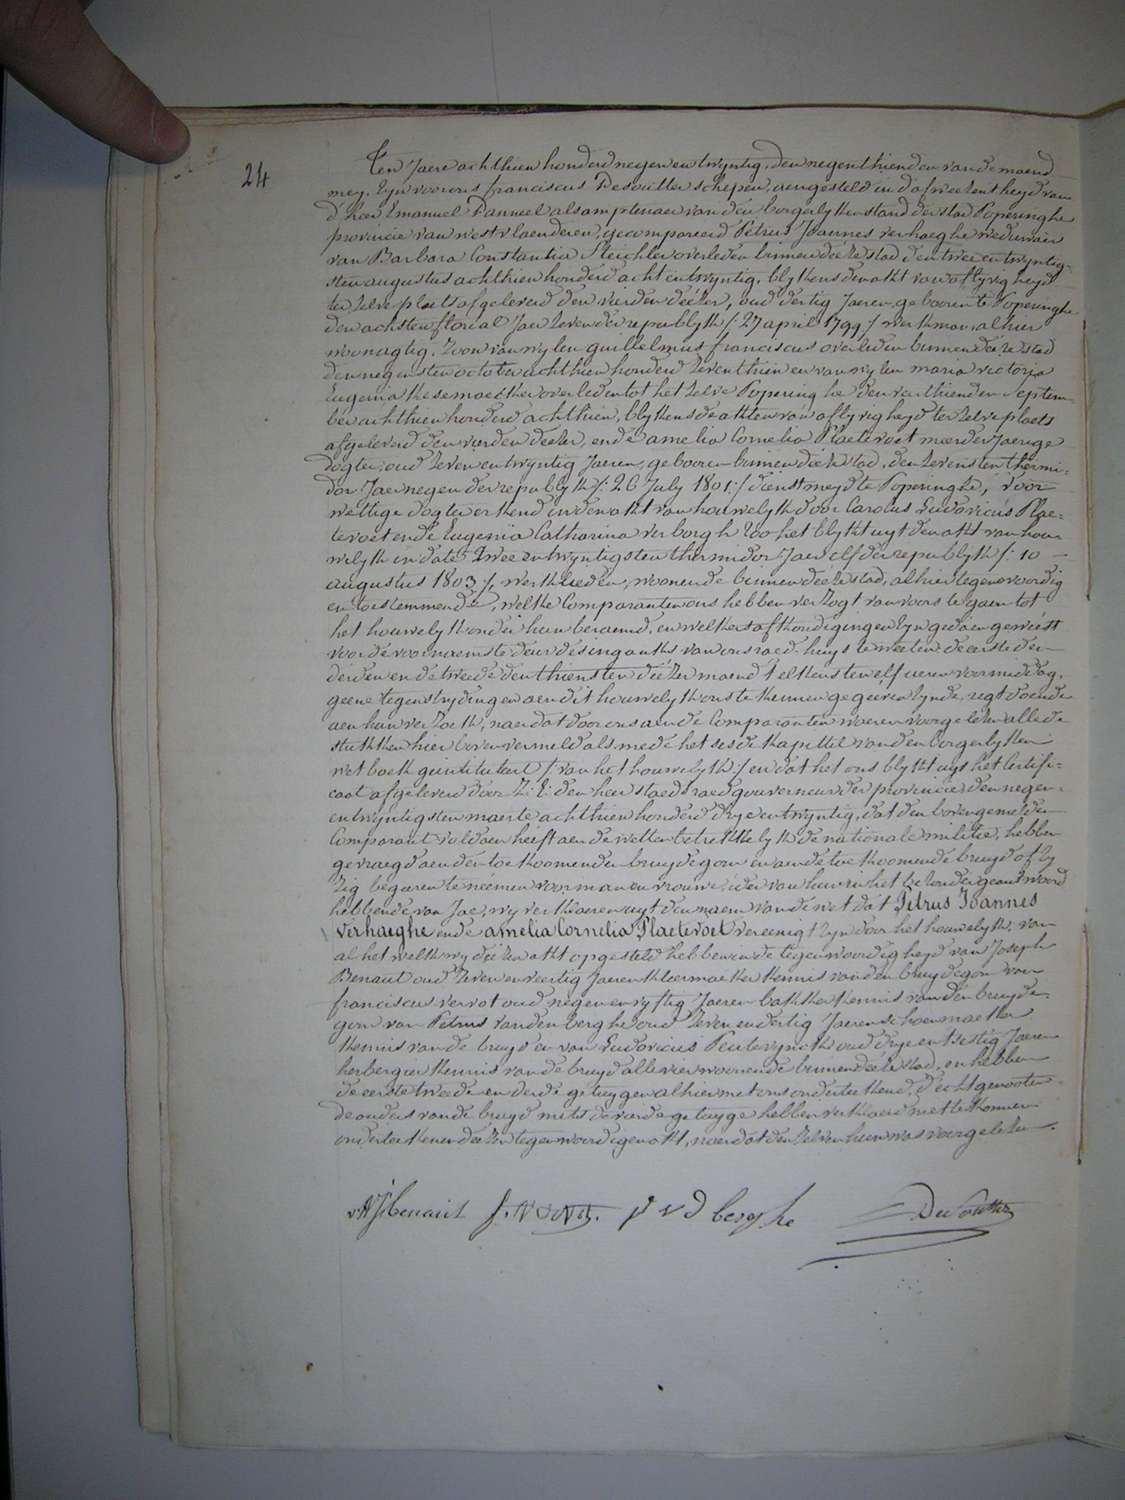 24
Ten Jaere achthien honderd negen en twyntig, den negenthienden van de maend
mey, zyn voor ons franciscus Desoutter schepen, aengesteld in d'afweezentheyd van
d'heer Emanuel Panneel als amptenaer van den borgerlyken stand der stad Poperinghe
provincie van westvlaenderen, gecompareerd Petrus Joannes verhaeghe weduwaer
van Barbara Constantia Steichler overleden binnen deéze stad den twee en twyntig-
sten augustus achthien honderd acht en twyntig, blykens den akt van aflyvigheyd
ter zelve plaets afgeleverd den vierden deézer, oud dertig Jaeren, gebooren te Poperinghe
den achsten floréal Jaer zeven der republyk /: 27 april 1799 :/ werkman, alhier
woonagtig, zoon van wylen guillelmus franciscus overleden binnen deéze stad
den negensten october achthien honderd zeventhien en van wylen maria victoria
Eugenia overleden tot het zelve Poperinghe den veerthienden Septem-
ber achthien honderd achthien, blykens de akten van aflyvigheyd ter zelve plaets
afgeleverd den vierden deézer, ende amelia Cornelia Plaetevoet meerderjaerige
dogter, oud zeven en twyntig Jaeren, gebooren binnen deéze stad, den zevensten thermi-
dor Jaer negen der republyk /: 26 July 1801 :/ dienstmeyd te Poperinghe, voor
wettige dogter erkend in den akt van houwelyk door Carolus Ludovicus Plae-
tevoet ende Eugenia Catharina verborgh zoo het blykt uyt den akt van hou-
welyk in date twee en twyntigsten thermidor Jaer elf der republyk /: 10
augustus 1803 :/, werklieden, woonende binnen deéze stad, alhier tegenwoordig
en toestemmende, welke Comparanten ons hebben verzogt van voors te gaen tot
het houwelyk onder hun beraemd, en welkers afkondigingen zyn gedaen geweest
voor de voornaemste deur des ingangks van ons raed-huys te weeten de eerste den
derden en de tweede den thiensten deézer maend t'elkens ten elf ueren voormiddag,
geene tegenstrydingen aen dit houwelyk ons te kennen gegeéven zynde, regt doende
aen hun verzoek, naer dat door ons aen de Comparanten waeren voorgelezen alle de
stukken hier boven vermeld als mede het sesde kapittel van den borgerlyken
wetboek geintituleert /: van het houwelyk :/ en dat het ons blykt uyt het Certifi-
caat afgeleverd door Z: E: den heer staedsraed gouverneur der provincie den negen-
en twyntigsten maerte achthien honderd drye en twyntig, dat den bovengemelden
Comparant voldaen heeft aen de wetten betrekkelyk de nationale militie, hebben
gevraegd aen den toekoomenden bruydegom en aen de toekoomende bruyd of zy
zig begeeren te neémen voor man en vrouwe, ider van hun in het byzonder geantwoord
hebbende van Jae, wy verklaeren uyt den naem van de wet dat Petrus Joannes
verhaeghe ende amelia Cornelia Plaetevoet vereenigt zyn door het houwelyk, van
al het welk wy deézen akt opgesteld hebben in de tegenwoordigheyd van Joseph
Benaut oud zeven en veertig Jaeren kleermaeker kennis van den bruydegom van
franciscus vervot oud negen en vyftig Jaeren bakker kennis van den bruyde-
gom van Petrus vanden berghe oud zeven en dertig Jaeren schoenmaeker
kennis van de bruyd en van Ludovicus oud drye en sestig Jaeren
herbergier kennis van de bruyd alle vier woonende binnen deéze stad, en hebben
de eerste tweede en derde getuygen alhier met ons onderteekend, d'echtgenooten
de ouders van de bruyd mits de vierde getuyge hebben verklaert niet te konnen
onderteekenen deézen tegenwoordigen akt, naer dat den zelven hun was voorgelezen.
Benaut P V D berghe Desoutter